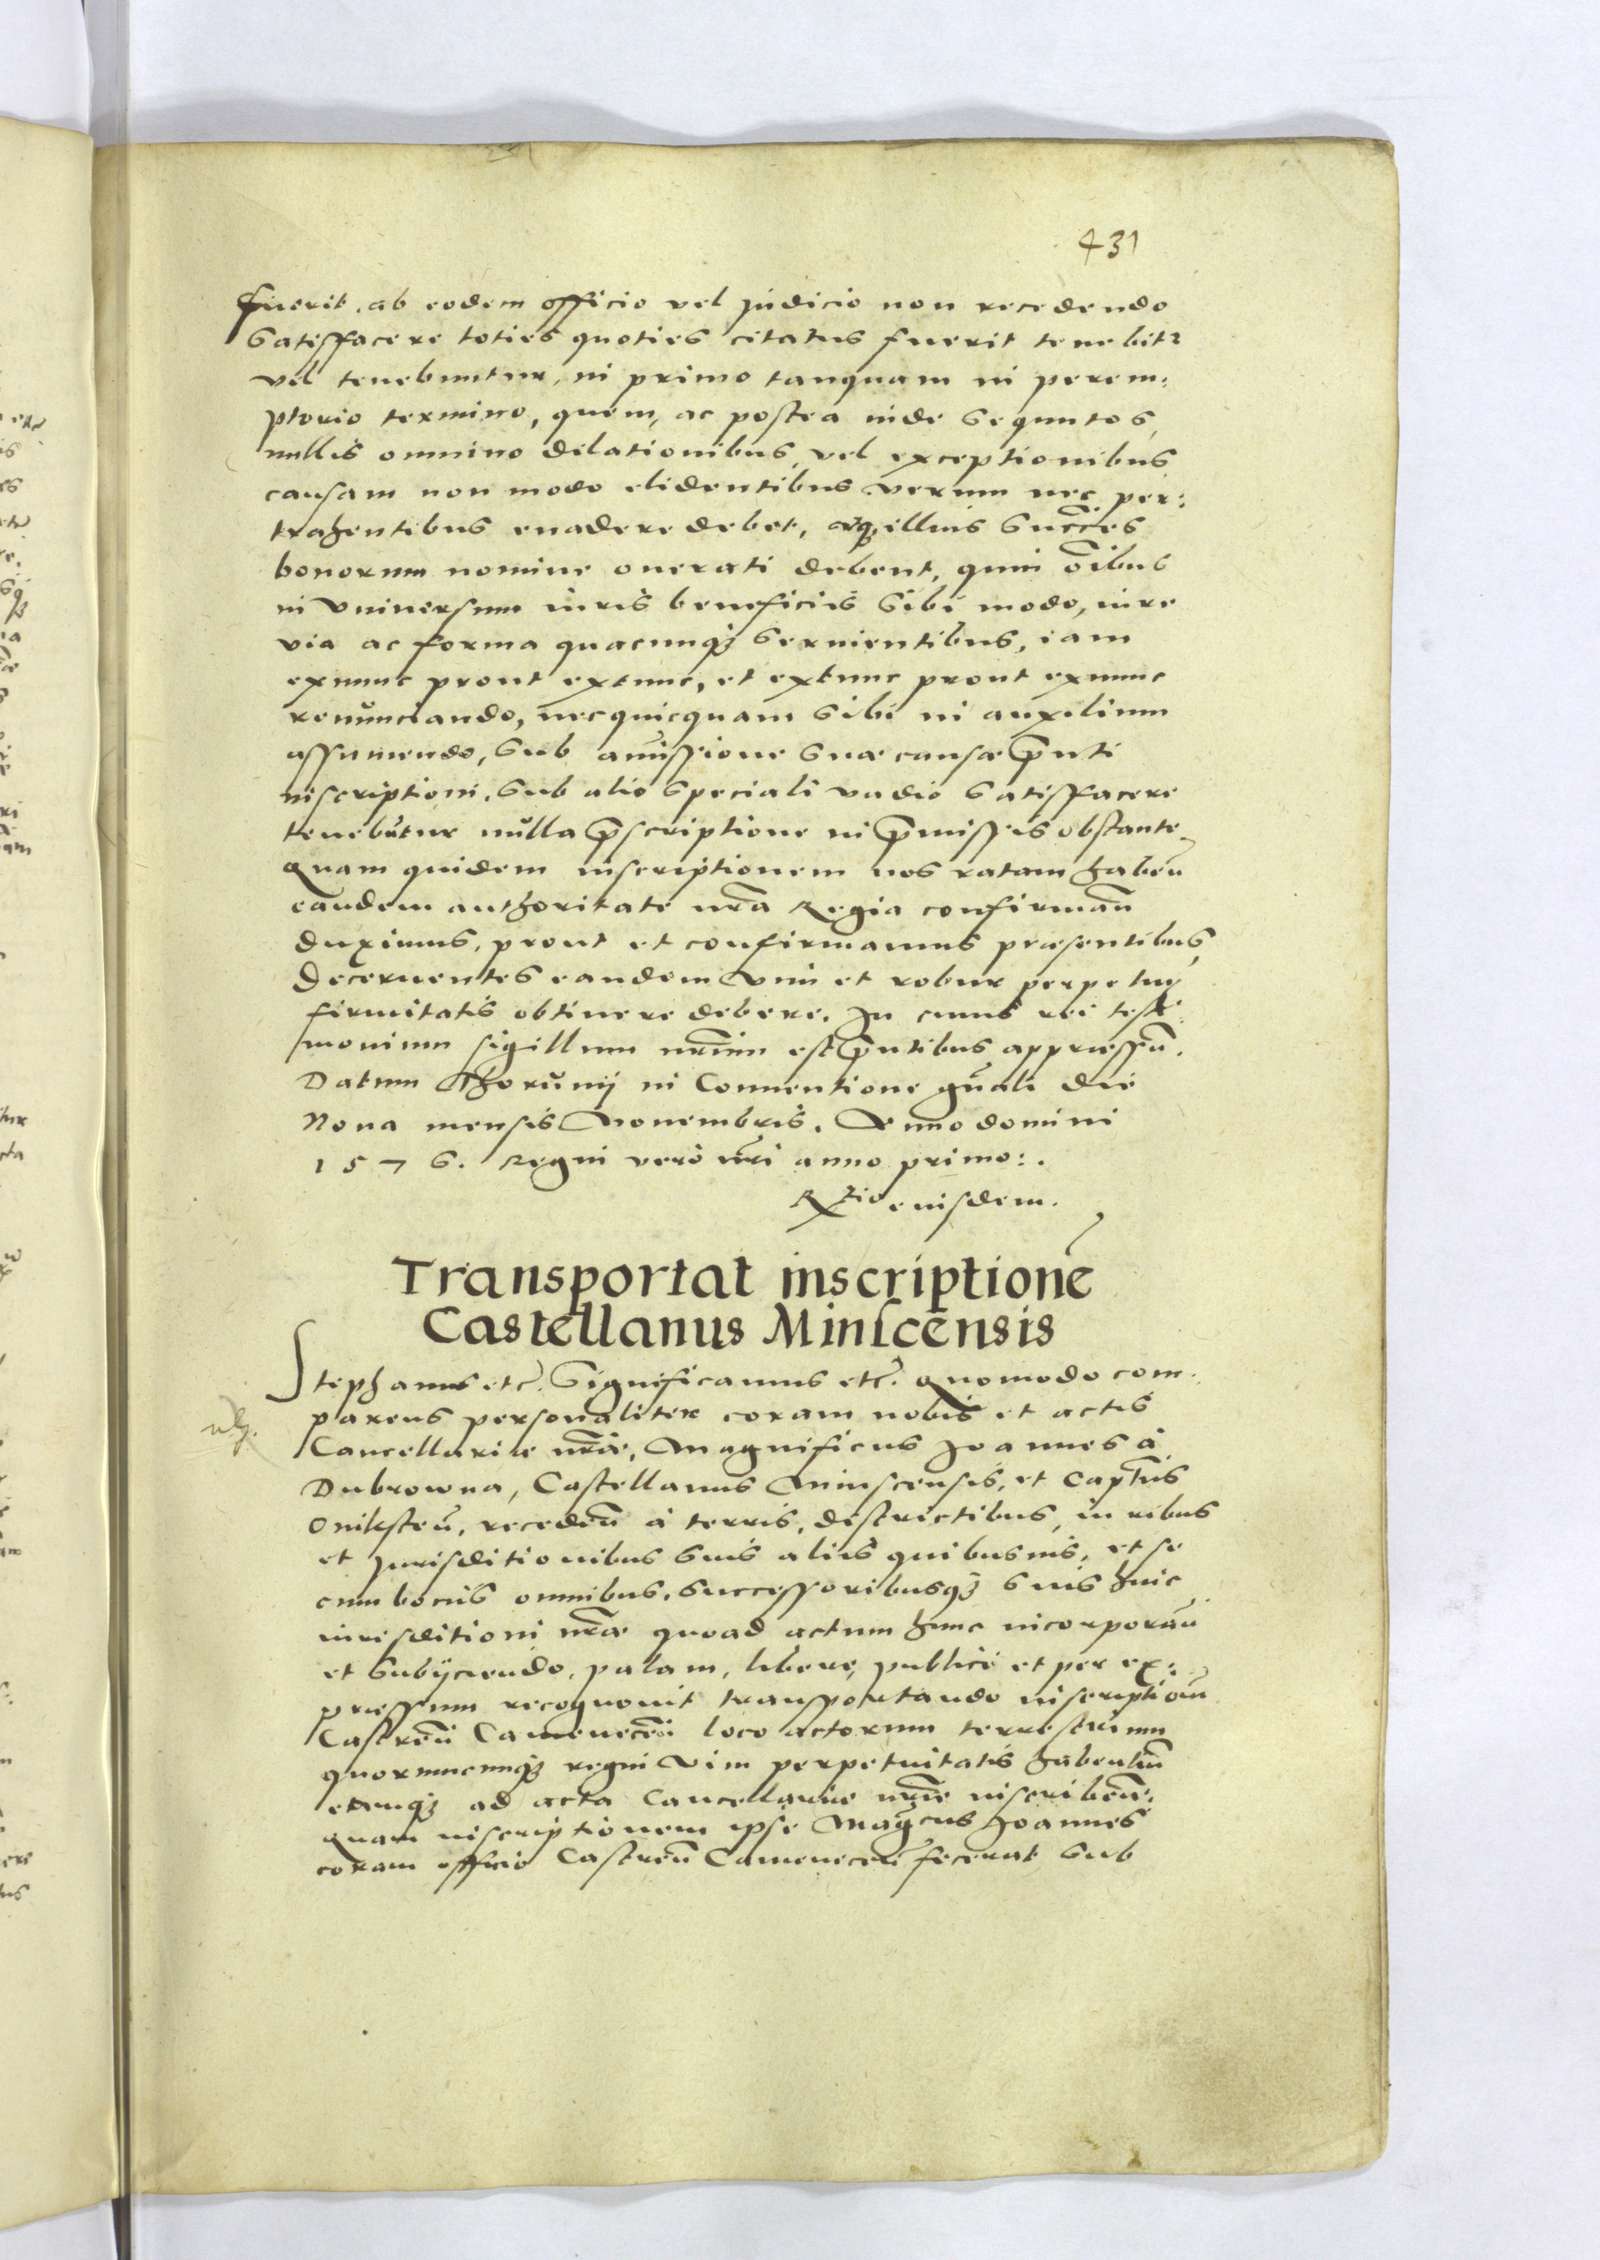 431
fuerit, ab eodem officio vel judicio non recedendo
satisfacere toties quoties citatus fuerit tenebitr
vel tenebuntur, in primo tanquam in perem:
ptorio termino, quem, ac postea inde sequutos,
nullis omnino dilationibus, vel exceptionibus
causam non modo elidentibus verum nec per:
trahentibus euadere debet, atq, illius succes
bonorum nomine onerati debent, quin oĩbus
in vniuersum iuris beneficiis sibi modo, iure
via ac forma quacunq seruientibus, iam
exnunc prout extunc, et extunc prout exnunc
renunciando, nec quicquam sibi in auxilium
assumendo, sub amissione suae causae pñti
inscriptioni, sub alio speciali vadio satisfacere
tenebutur nulla pscriptione in pmissis obstante.
Quam quidem inscriptionem nos ratam habeñ
eandem authoritate nra Regia confirmañ
duximus, prout et confirmamus praesentibus,
decernentes eandem vim et robur perpetuę
firmitatis obtinere debere. In cuius rei testi
monium sigillum nrum est pñtibus appressũ.
Datum Thorunij in Conuentione gñali die
Nona mensis Nouembris. Anno domini
1576. Regni verò nri anno primo:.
Rtio eiusdem.
Transportat inscriptionẽ
Castellanus Minscensis
Stephanus etc. Significamus etc. Quomodo com.
parens personaliter coram nobis et actis
Cancellariae nrae, Magnificus Joannes à
Dubrowna, Castellanus Minscensis, et Captus
Oniksteñ, recedeñ à terris, districtibus, iuribus
et jurisditionibus suis aliis quibusuis, et se
cum bonis omnibus, successoribusq suis huic
iurisditioni nrae quoad actum hunc incorporañ
et subijciendo, palam, libere, publicè et per ex:
pressum recognouit transportando inscriptioñ
Castreñ Cameneceñ loco actorum terrestrium
quorumcunq regni vim perpetuitatis habentiũ
ad acta Cancellariae nrae inscribeñ.
Quam inscriptionem ipse Magcus Joannes
coram officio Castreñ Cameneceñ fecerat sub